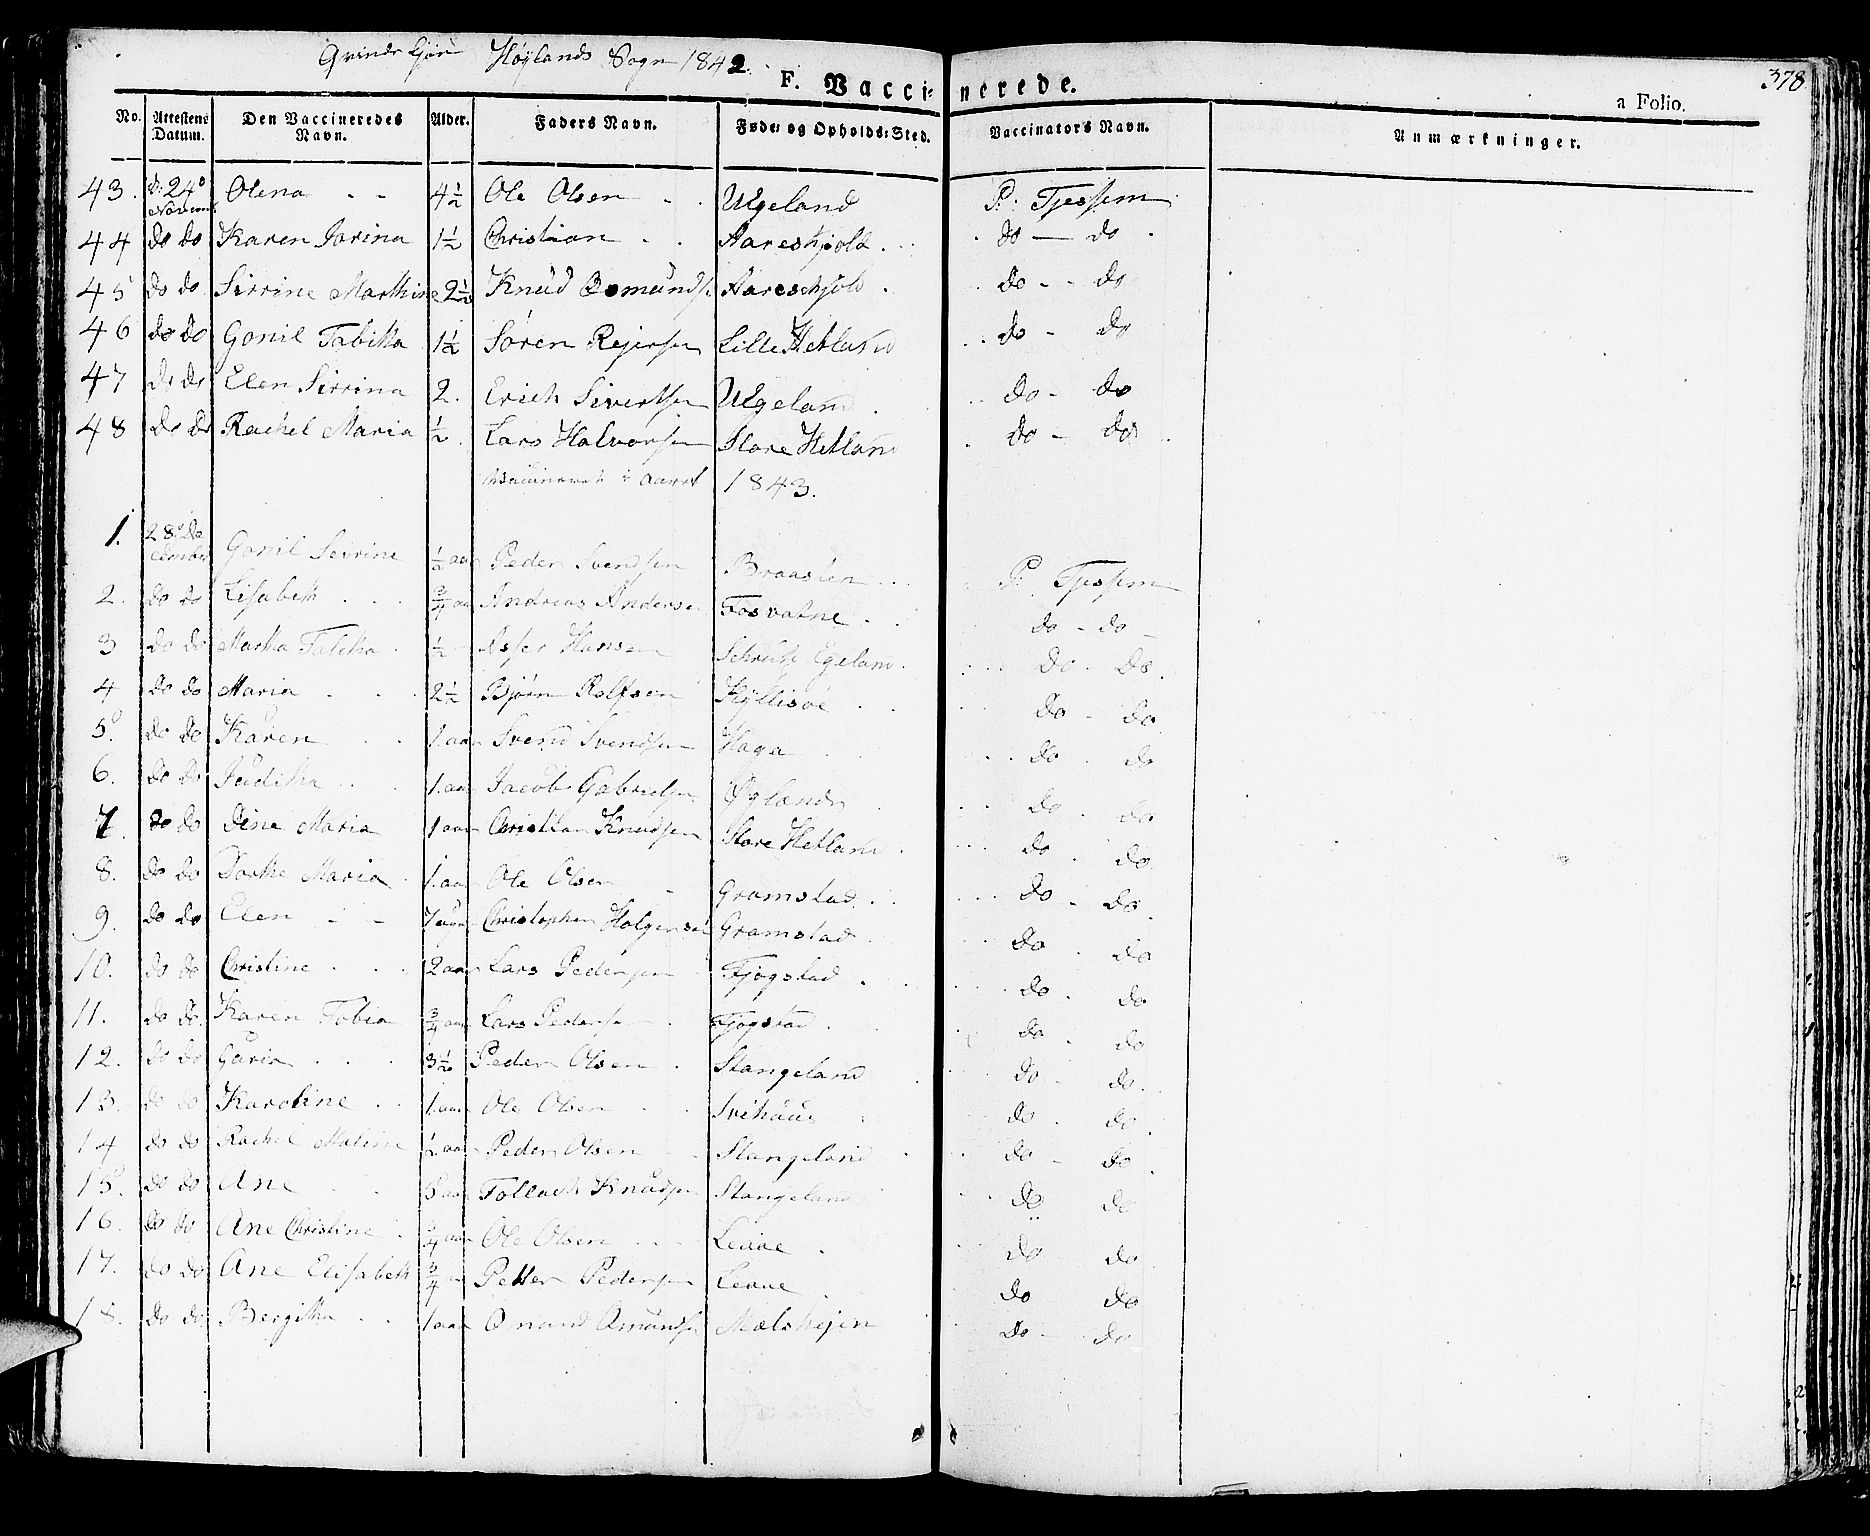 Qvindekjön Höylands Sogn 1842.
F. Vaccinerede.
378
a Folio.
No. Attestens Datum. Den Vaccineredes Navn. Alder. Faders Navn. Føde- og Opholds-Sted. Vaccinators Navn. Anmærkninger.
43. d: 24d Novem: Olena 4 1/2 Ole Olsen Ulgeland P. Tjessem
44 do do Karen Jorina 1 1/2 Christian Aareskjold do do
45 do do Sirrine Marthine 2 1/2 Knud Aareschjold do do
46 do do Gonil Tabitha 1 1/2 Sören Rejersen Lille Hetland do do
47 do do Elen Sirrina 2. Erich Sivertsen Ulgeland do do
48 do do Rachel Maria 1/2. Lars Halvorsen Store Hetland do do
Vaccineret i Aaret 1843.
1. 28d December Gonil Seirine 1/2 aar Peder Svendsen Braasten P. Tjessem
2. do do Lisabeth 3/4 aar Andreas Andersen Fosvatne do do
3 do do Martha 1/2 Asser Hansen Egeland do do
4 do do Maria 2 1/2 Björn Rolfsen Kÿllisøe do do
5. do do Karen 1. aar Svend Svendsen Haga do do
6. do do Juditha 1. aar Jacob Gabrielsen Øglænd do do
7. do do Dine Maria 1 aar Christian Knudsen Store Hetland do do
8. do do Dorthe Maria 1. aar Ole Olsen Gramstad do do
9. do do Elen 7 aar Christopher Holgersen Gramstad do do
10. do do Christine 2 aar Lars Pedersen Fjogstad do do
11. do do Karen Tobia 3/4 aar Lars Pedersen Fjogstad do do
12. do do Guria 3 1/2 Peder Olsen Stangeland do do
13. do do Karoline 1. aar Ole Olsen Svihuus do do
14 do do Rachel Maline 1/2 aar Peder Olsen Stangeland do do
15. do do Ane aar Tollach Knudsen Stangeland do do
16. do do Ane Christine 3/4 aar Ole Olsen Leave do do
17. do do Ane Elisabeth 3/4 Petter Pedersen Leave do do
18. do do Bergitha 1 aar Omund Omundsen do do